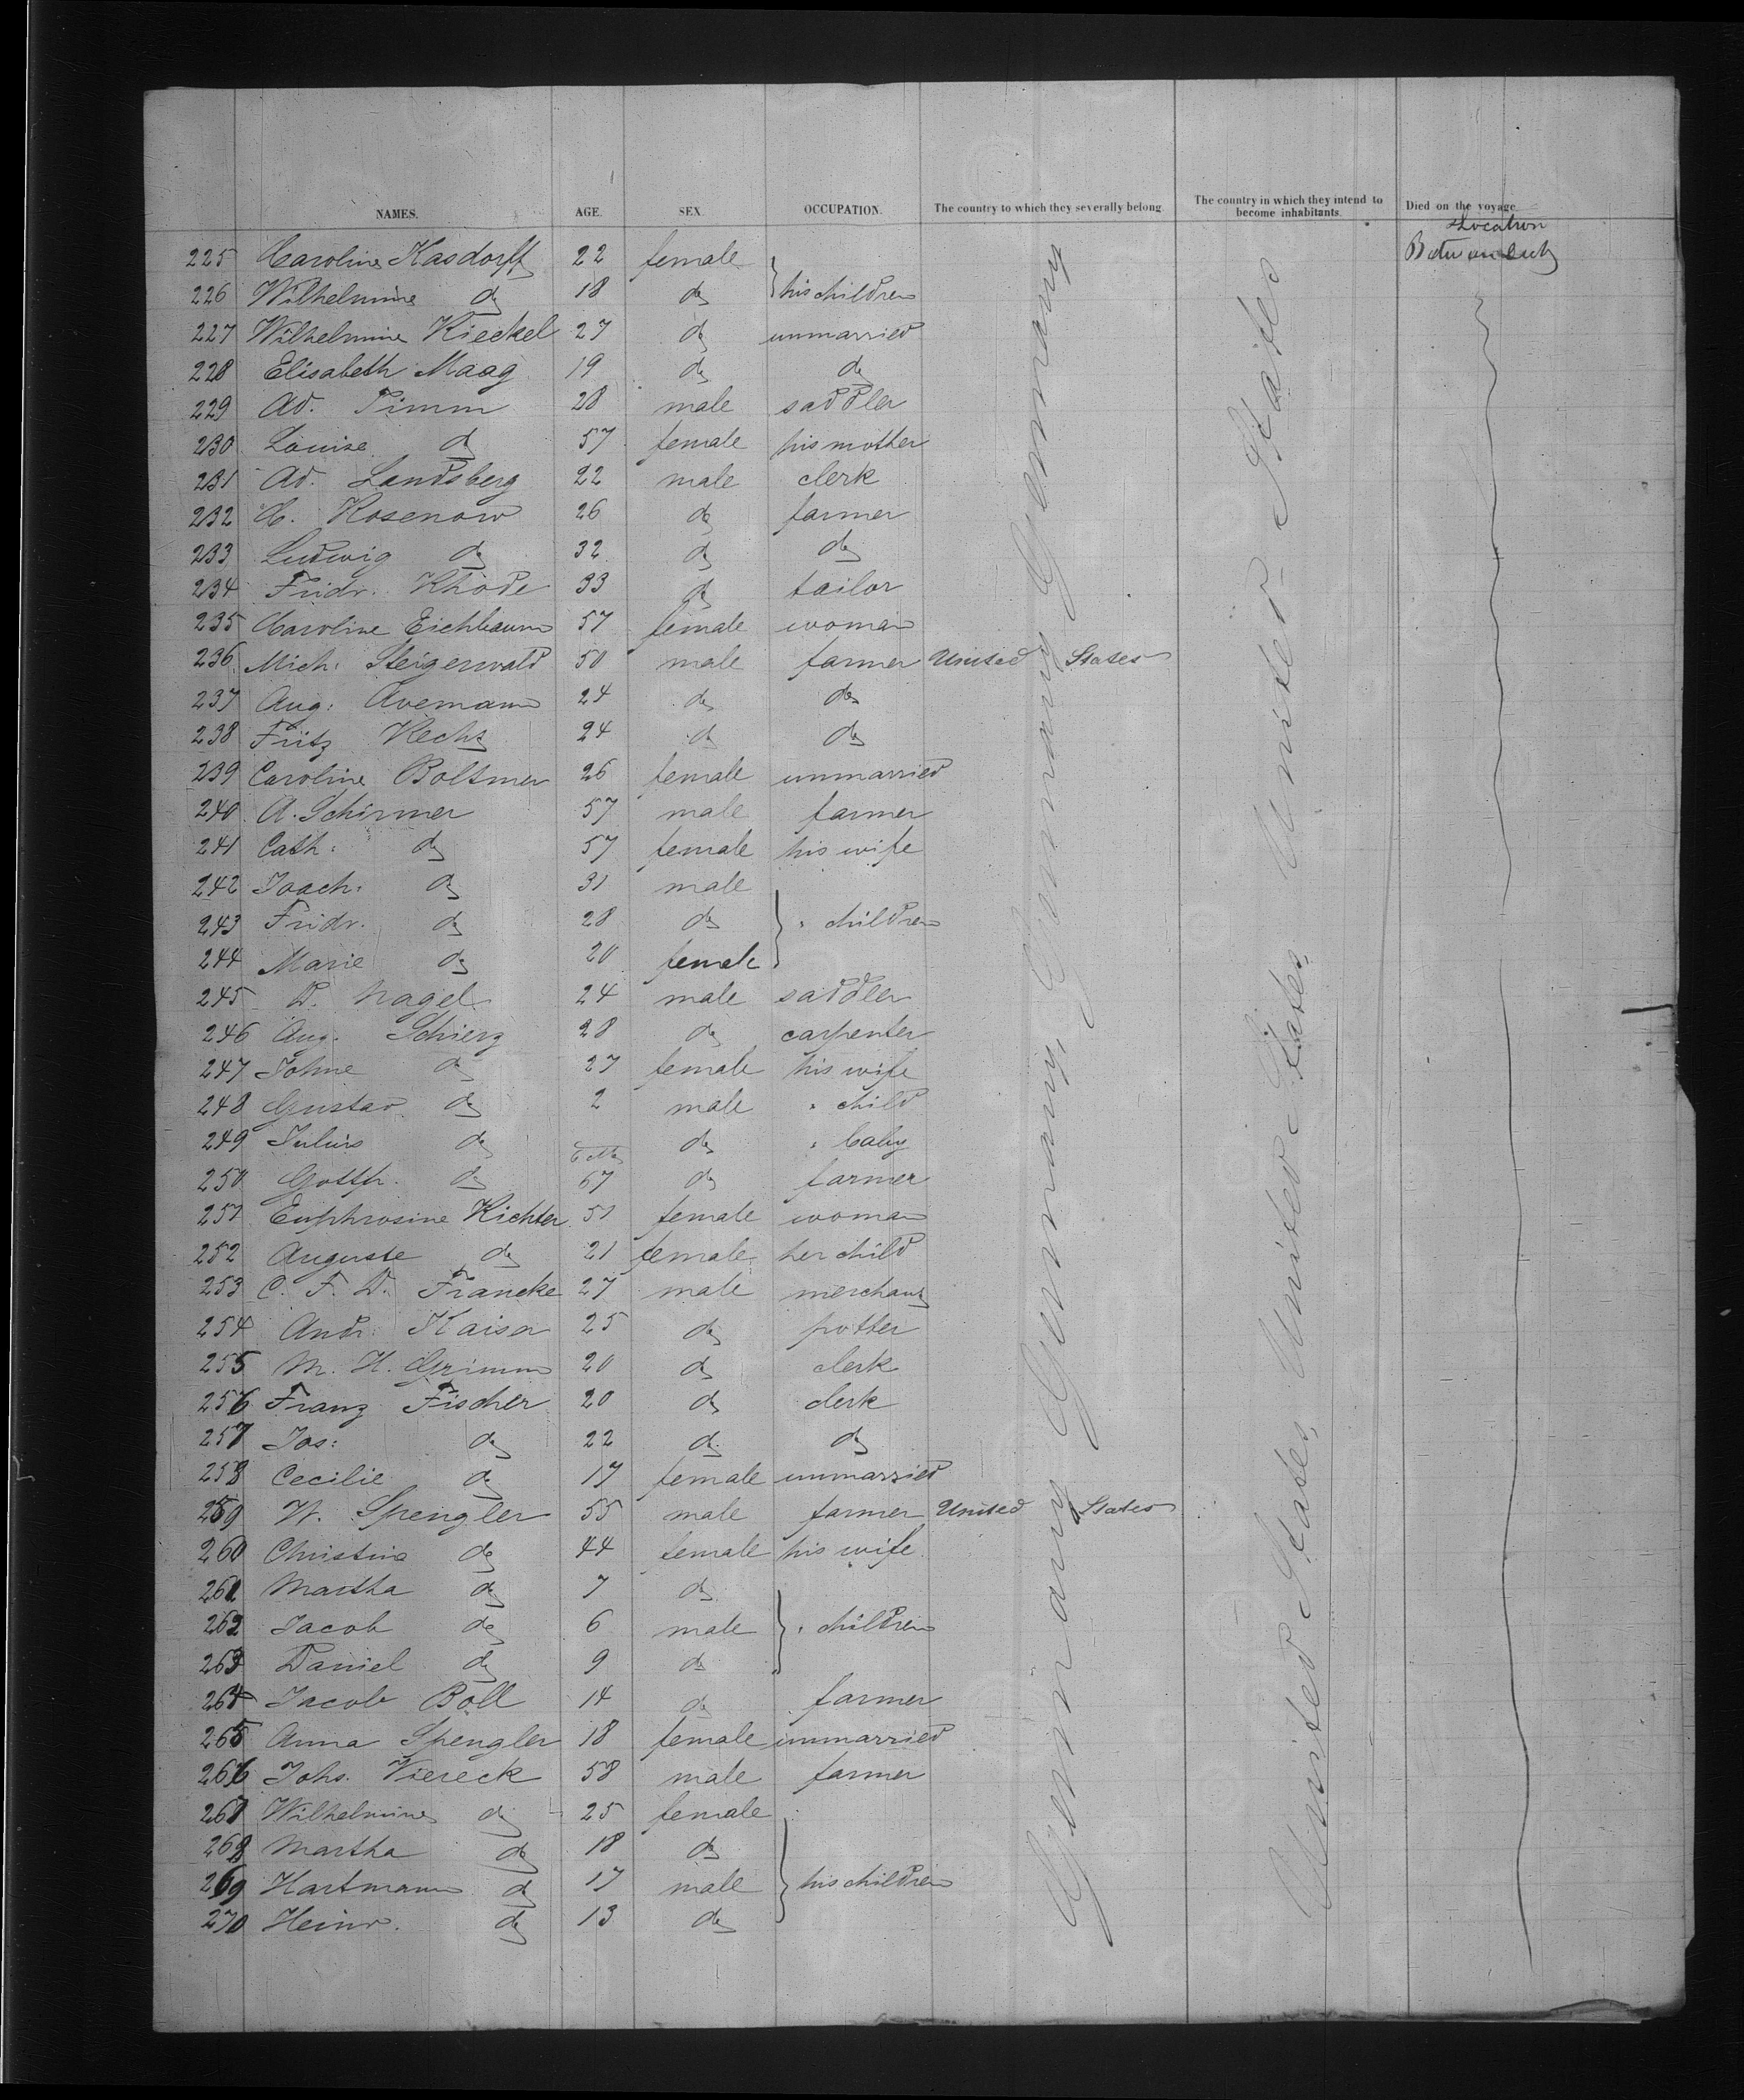 NAMES. AGE. SEX. OCCUPATION. The country to which they severally belong. The country in which they intend to become inhabitants. Died on the voyage
Location
Between decks
225 Caroline Kasdorff 22 female
226 Wilhelmine do 18 do his children
227 Wilhelmine Kieckel 27 do unmarried
228 Elisabeth Maag 19 do do
229 Ad. Timm 28 male saddler
230 Louise do 57 female his mother
231 Ad. Landsberg 22 male clerk
232 C. Rosenow 26 do farmer
233 Ludwig do 32 do do
234 Fridr. Rhode 33 do tailor
235 Caroline Eichbaum 57 female woman
236 Mich: Steigerwald 50 male farmer United States
237 Aug: Avemann 24 do do
238 Fritz Rechs 24 do do
239 Caroline Boltmer 26 female unmarried
240 A. Schirmer 57 male farmer
241 Cath: do 57 female his wife
242 Joach: do 31 male
243 Fridr. do 28 do " children
244 Marie do 20 female
245 D. Nagel 24 male saddler
246 Aug. Schierz 28 do carpenter
247 Johne do 27 female his wife
248 Gustav do 2 male " child
249 Julius do 6 Mo do " baby
250 Gottfr. do 67 do farmer
251 Euphrosine Richter 51 female woman
252 Auguste do 21 female her child
253 C. F. D. Francke 27 male merchant
254 Andr. Kaiser 25 do potter
255 M. H. Grimm 20 do clerk
256 Franz Fischer 20 do clerk
257 Jos: do 22 do do
258 Cecilie do 17 female unmarried
259 W. Spengler 55 male farmer United States
260 Christine do 44 female his wife
261 Martha do 7 do
262 Jacob do 6 male " children
263 Daniel do 9 do
264 Jacob Boll 14 do farmer
265 Anna Spengler 18 female unmarried
266 Johs. Viereck 58 male farmer
267 Wilhelmine do 25 female
268 Martha do 18 do
269 Hartmann do 17 male his children
270 Heinr. do 13 do
Germany Germany, Germany Germany
United States, United States, United States